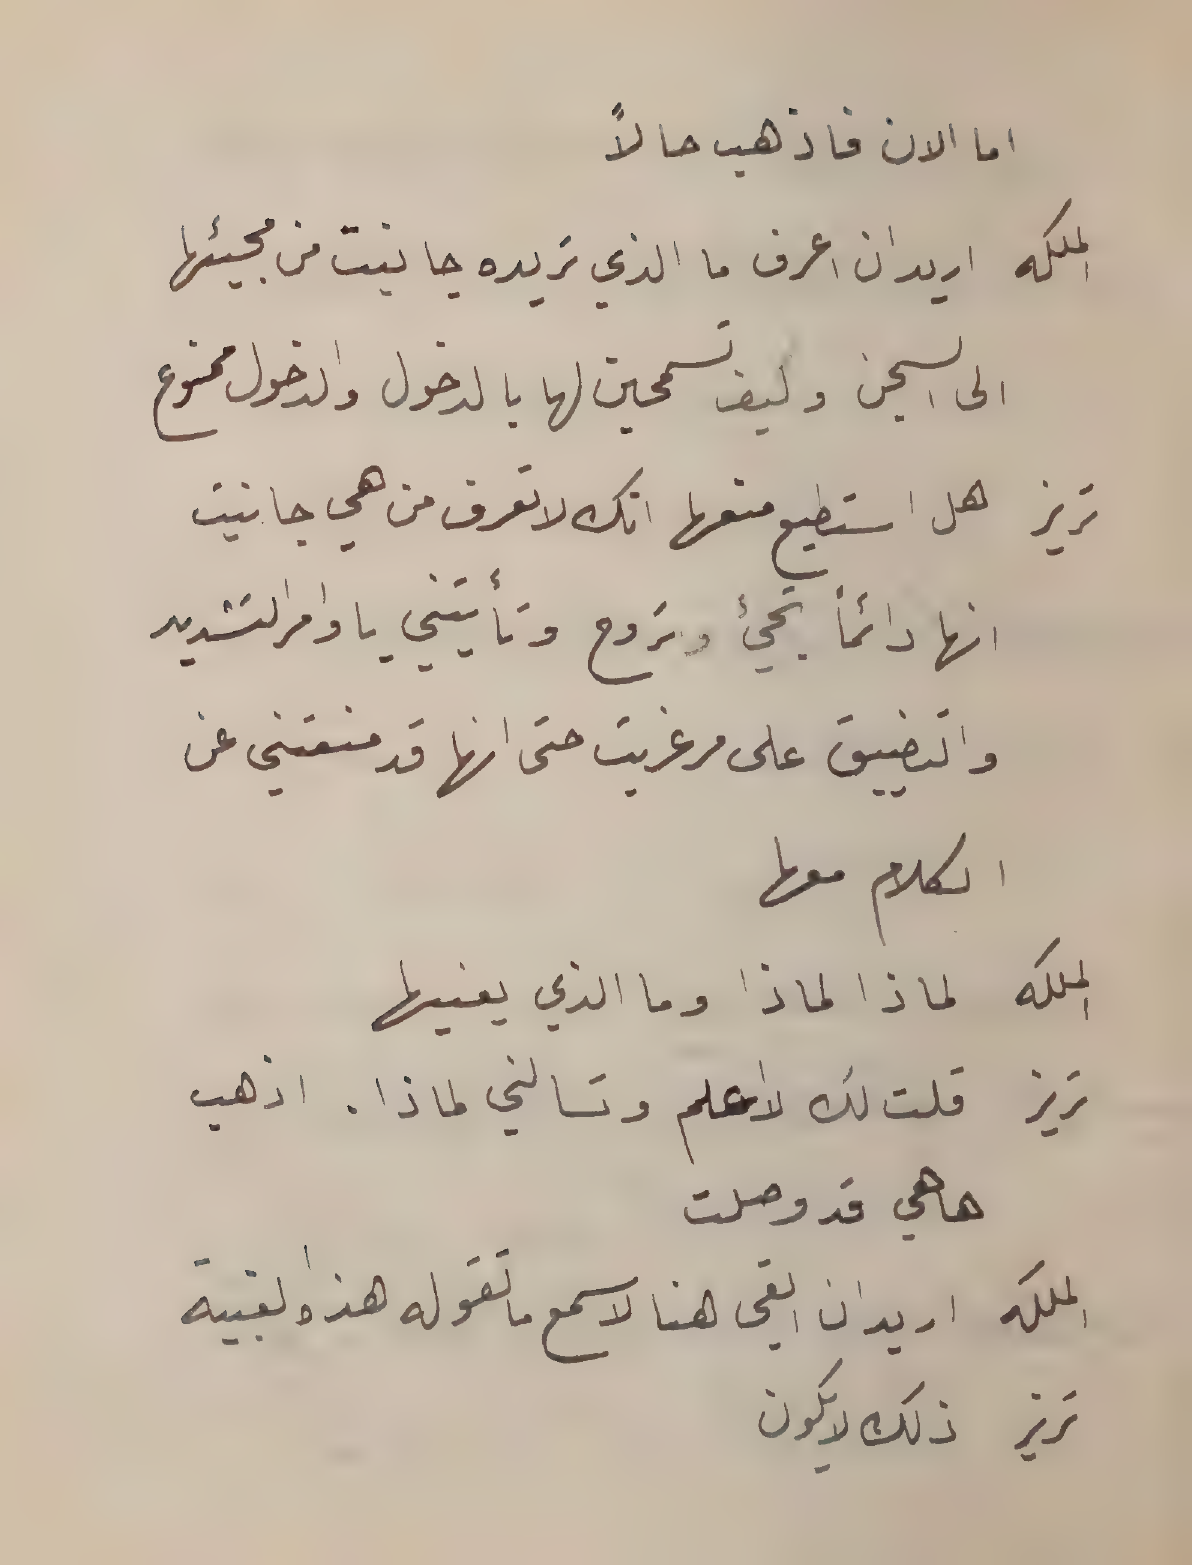 اما الان فاذهب حالاً
الملكه اريد ان اعرف ما الذي تريده جانيت من مجيئها
الى السجن وكيف تسمحين لها بالدخول والدخول ممنوع
تريز هل استطيع منعها انك لا تعرف من هي جانيت
انها دائماً تجيئ وتروح وتأيتني باوامر التشديد
والتضييق على مرغريت حتى انها قد منعتني عن
الكلام معها
الملكه لماذا لماذا وما الذي يعنيها
تريز قلت لك لا اعلم وتسالني لماذا . اذهب
هاهي قد وصلت
الملكه اريد ان ابقى هنا لاسمع ما تقوله هذه
تريز ذلك لا يكون